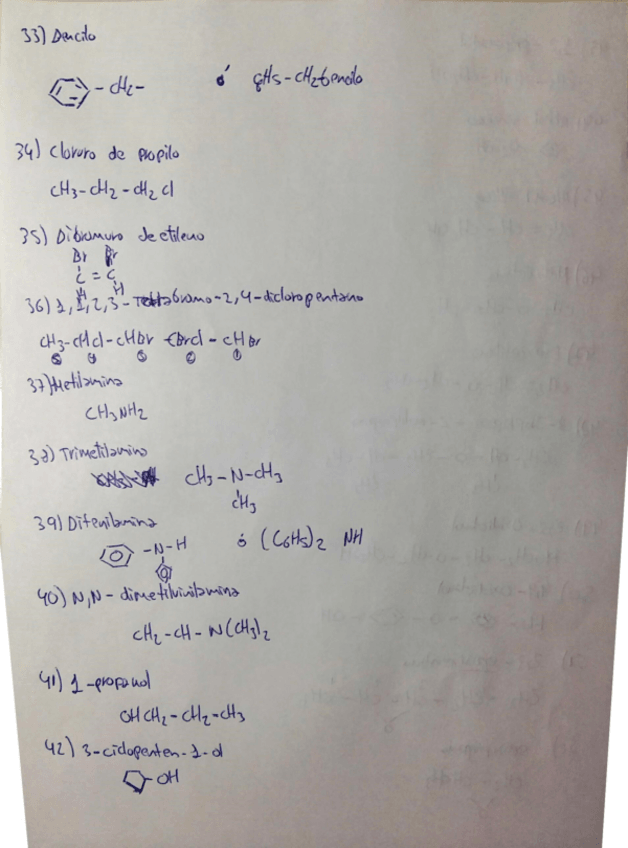 33) Bencilo
-CH2- ó C6H5-CH2 bencilo
34) Cloruro de propilo
CH3-CH2-CH2Cl
35) Dibromuro de etileno
Br Br
C = C
H H
36) 1,1,2,3-Tetrabromo-2,4-dicloropentano
CH3-CHCl-CHBr-CBrCl-CHBr
5 4 3 2 1
37) Metilamina
CH3NH2
38) Trimetilamina
CH3-N-CH3
CH3
39) Difenilamina
-N-H ó (C6H5)2 NH
40) N,N-dimetilvinilamina
CH2-CH-N(CH3)2
41) 1-propanol
OHCH2-CH2-CH3
42) 3-ciclopenten-1-ol
-OH